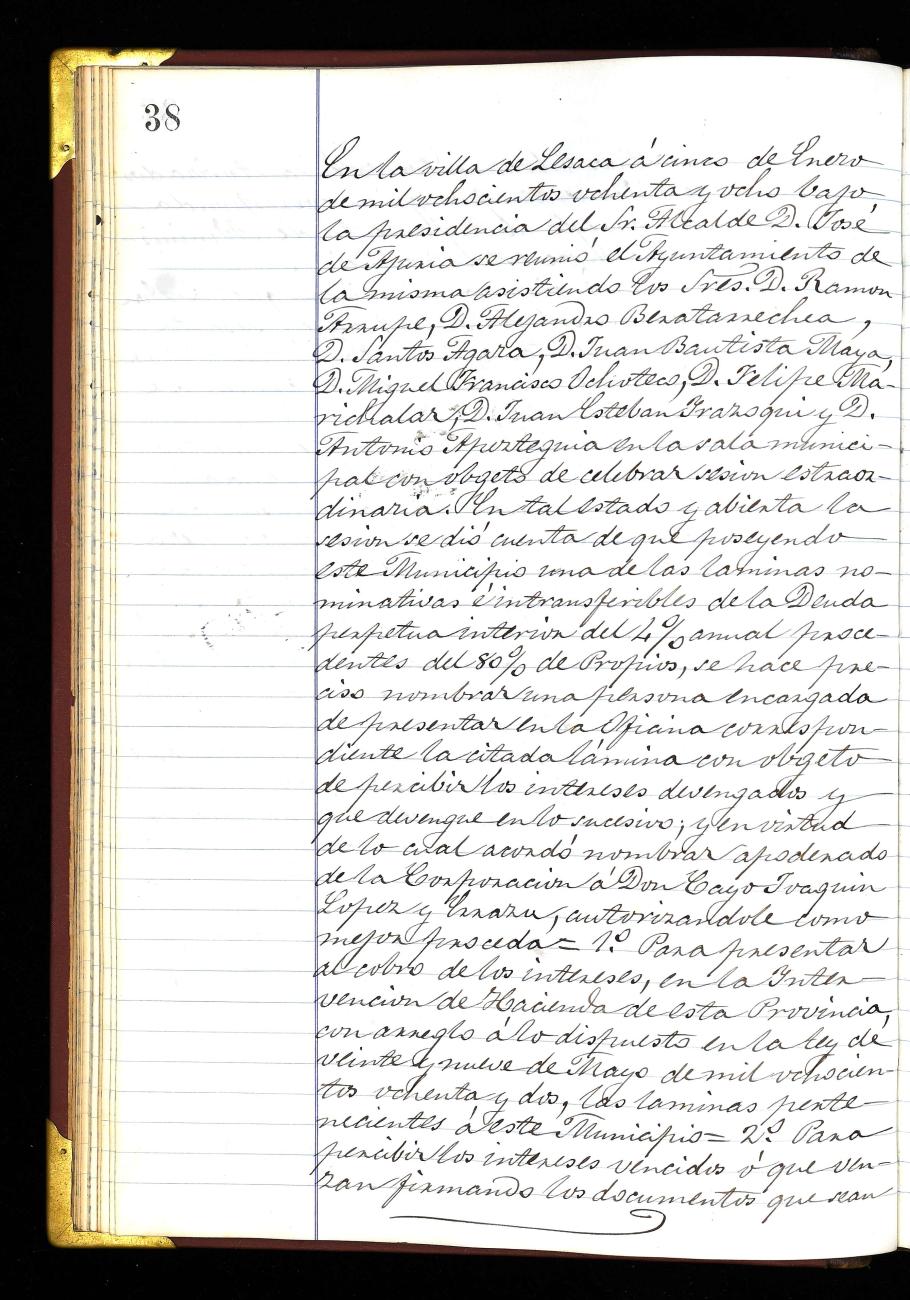 38
En la villa de Lesaca á cinco de Enero
de mil ochocientos ochenta y ocho bajo
la presidencia del Sr. Alcalde D. José
de Apuria se reunió el Ayuntamiento de
la misma asistiendo los Sres. D. Ramon
Arrupe, D. Alejandro Beratarrechea,
D. Santos Agara, D. Juan Bautista Maya,
D. Miguel Francisco Ochoteco, D. Felipe Ma-
richalar, D. Juan Esteban Irazoqui y D.
Antonio Apezteguia en la sala munici-
pal con objeto de celebrar sesion estraor-
dinaria. En tal estado y abierta la
sesion se dió cuenta de que poseyendo
este Municipio una de las laminas no-
minativas é intransferibles de la Deuda
perpetua interior del 4% anual proce-
dentes del 80% de Propios, se hace pre-
ciso nombrar una persona encargada
de presentar en la Oficina correspon-
diente la citada lámina con objeto
de percibir los intereses devengados y
que devengue en lo sucesivo; y en virtud
de lo cual acordó nombrar apoderado
de la Corporacion á Don Cayo Joaquin
Lopez y Errazu, autorizandole como
mejor proceda = 1.º Para presentar
al cobro de los intereses, en la Inter-
vencion de Hacienda de esta Provincia,
con arreglo á lo dispuesto en la ley de
veinte y nueve de Mayo de mil ochocien-
tos ochenta y dos, las laminas perte-
necientes á este Municipio = 2.º Para
percibir los intereses vencidos ó que ven-
zan firmando los documentos que sean